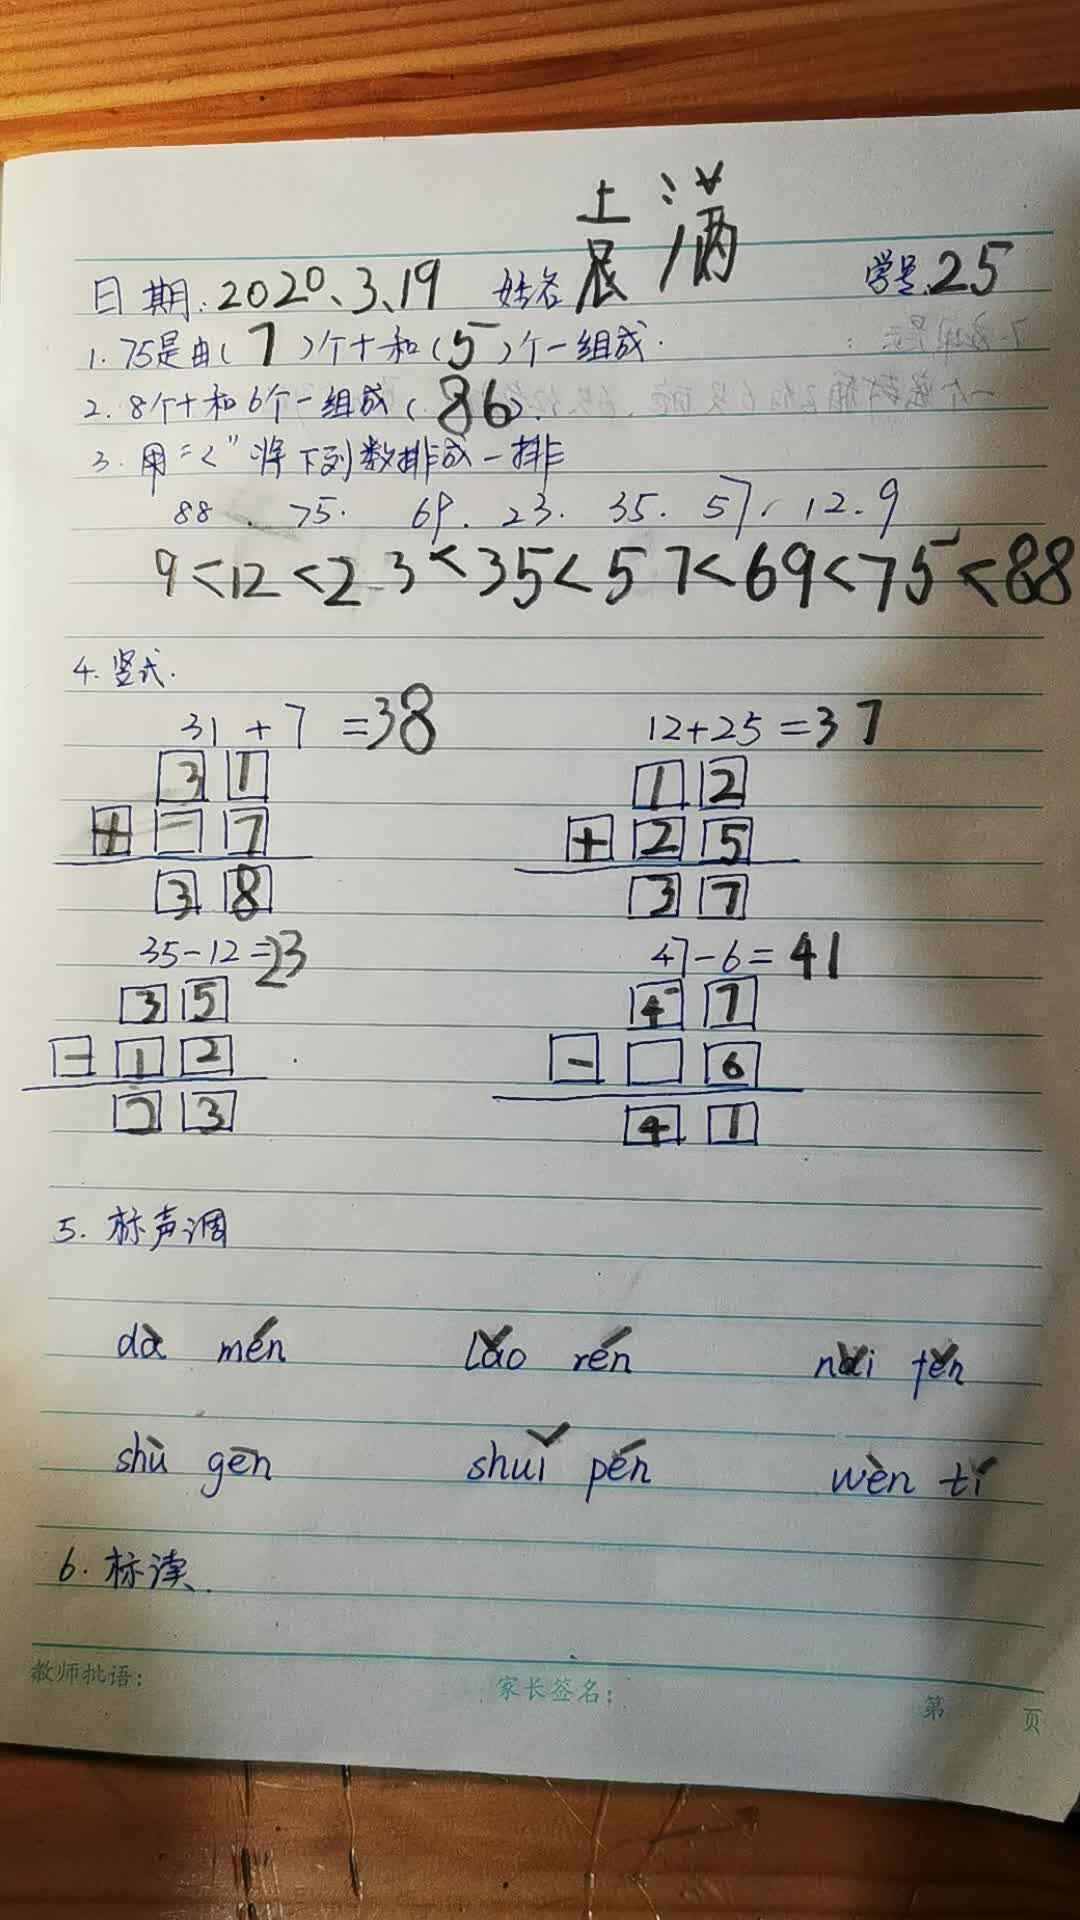 日期:2020、3、19 姓名 学号:25
1.75是由(7)个十和(5)个一组成.
2.8个十和6个一组成(86).
3.用"<"将下列数排成一排
88、75. 69. 23. 35. 57、12.9
9<12<23<35<57<69<75<88
4.竖式.
31+7=38 12+25=37
31 12
+ 7 +25
38 37
35-12=23 47-6=41
35 47
-12 - 6
23 41
5.标声调
dà mén lǎo rén nǎi fěn
shù gēn shuǐ pén wèn tí
6.标读.
教师批语: 家长签名: 第 页